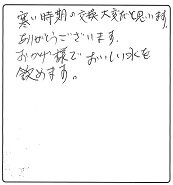 寒い時期の交換大変だと思います。
ありがとうございます。
おかげ様でおいしい水を
飲めます。